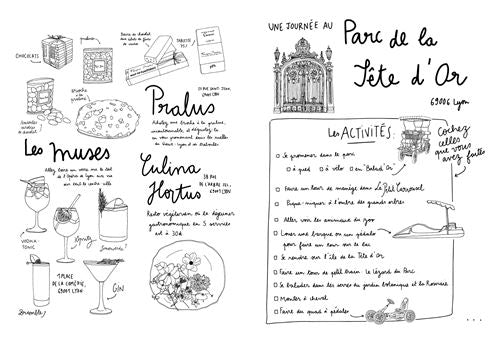 CHOCOLATS
praluline
Barre de chocolat
TABLETTE
75%
Brioche
à la
praline
Pralus
Achetez une brioche à la praline,
incontournable, et dégustez la
en vous promenant dans les ruelles
du Vieux-Lyon et ses traboules
Les Muses
Allez boire un verre sur le toit
de l'Opéra de Lyon avec vue
sur toute la ville
VODKA-
TONIC
Spritz
Limonade!
1 PLACE
DE LA COMÉDIE,
69001 LYON
GIN
Culina
Hortus
38 RUE
DE L'ARBRE SEC,
69001 LYON
Resto végétarien où le déjeuner
gastronomique en 5 services
est à 30€
UNE JOURNÉE AU
Parc de la
Tête d'Or
69006 Lyon
Les ACTIVITÉS:
Cochez
celles
que vous
avez faites
Se promener dans le parc
à pied
à vélo
en "Rosalie"
Faire un tour de manège dans Le Petit Carrousel
Pique-niquer à l'ombre des grands arbres
Aller voir les animaux du zoo
Louer une barque ou un pédalo
pour faire un tour sur le lac
Se rendre sur l'île de la Tête d'Or
Faire un tour de petit train: Le Lézard du Parc
Se balader dans les serres du jardin botanique et la Roseraie
Monter à cheval
Faire du quad à pédales
...